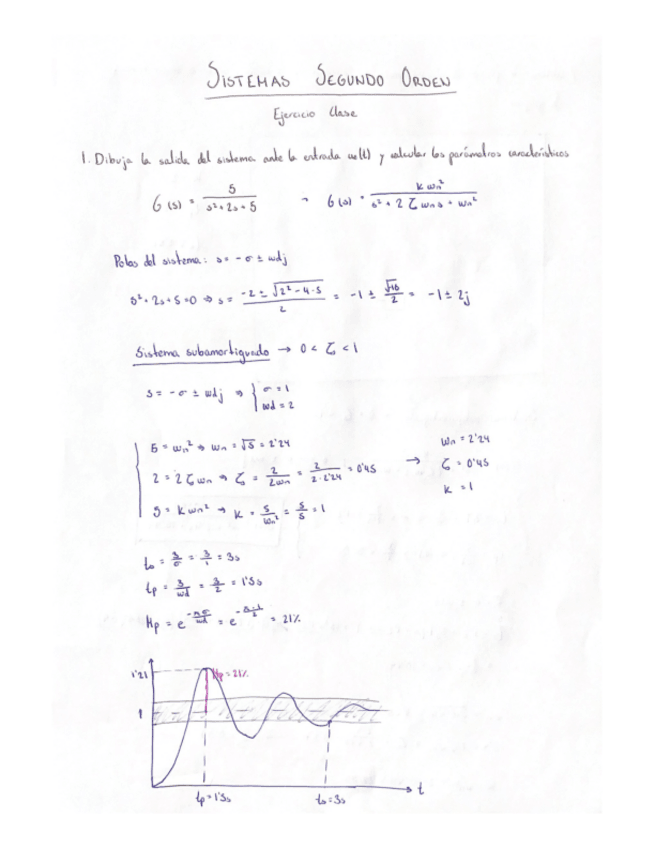 SISTEMAS SEGUNDO ORDEN
Ejercicio Clase
1. Dibuja la salida del sistema ante la entrada ue(t) y calcular los parámetros característicos
G(s) = 5 / (s² + 2s + 5) ~ G(s) = k wn² / (s² + 2 ζ wn s + wn²)
Polos del sistema: s = -σ ± wdj
s² + 2s + 5 = 0 ⇒ s = (-2 ± √(2² - 4·5)) / 2 = -1 ± √16 / 2 = -1 ± 2j
Sistema subamortiguado → 0 < ζ < 1
s = -σ ± wdj ⇒ { σ = 1
wd = 2
5 = wn² ⇒ wn = √5 = 2'24
2 = 2 ζ wn ⇒ ζ = 2 / 2wn = 2 / 2·2'24 = 0'45
5 = k wn² ⇒ k = 5 / wn² = 5 / 5 = 1
→
wn = 2'24
ζ = 0'45
k = 1
ts = 3/σ = 3/1 = 3s
tp = 3/wd = 3/2 = 1'5s
Mp = e^(-πσ/wd) = e^(-π·1/2) = 21%
1'21
Mp = 21%
1
t
tp = 1'5s
ts = 3s